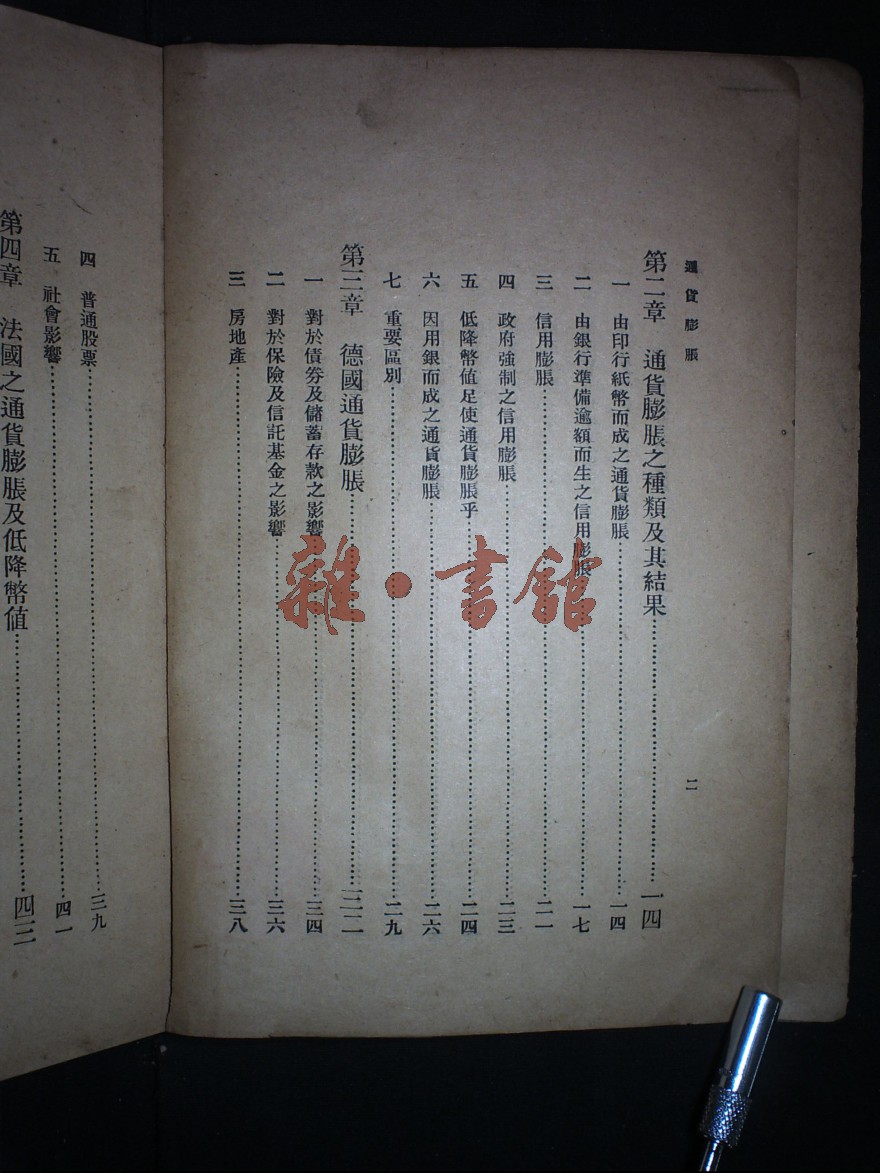 通貨膨脹
二
第二章 通貨膨脹之種類及其結果……一四
一 由印行紙幣而成之通貨膨脹……一四
二 由銀行準備逾額而生之信用膨脹……一七
三 信用膨脹……二一
四 政府強制之信用膨脹……二三
五 低降幣值足使通貨膨脹乎……二四
六 因用銀而成之通貨膨脹……二六
七 重要區別……二九
第三章 德國通貨膨脹……三二
一 對於債券及儲蓄存款之影響……三四
二 對於保險及信託基金之影響……三六
三 房地產……三八
四 普通股票……三九
五 社會影響……四一
第四章 法國之通貨膨脹及低降幣值……四三
雜·書館